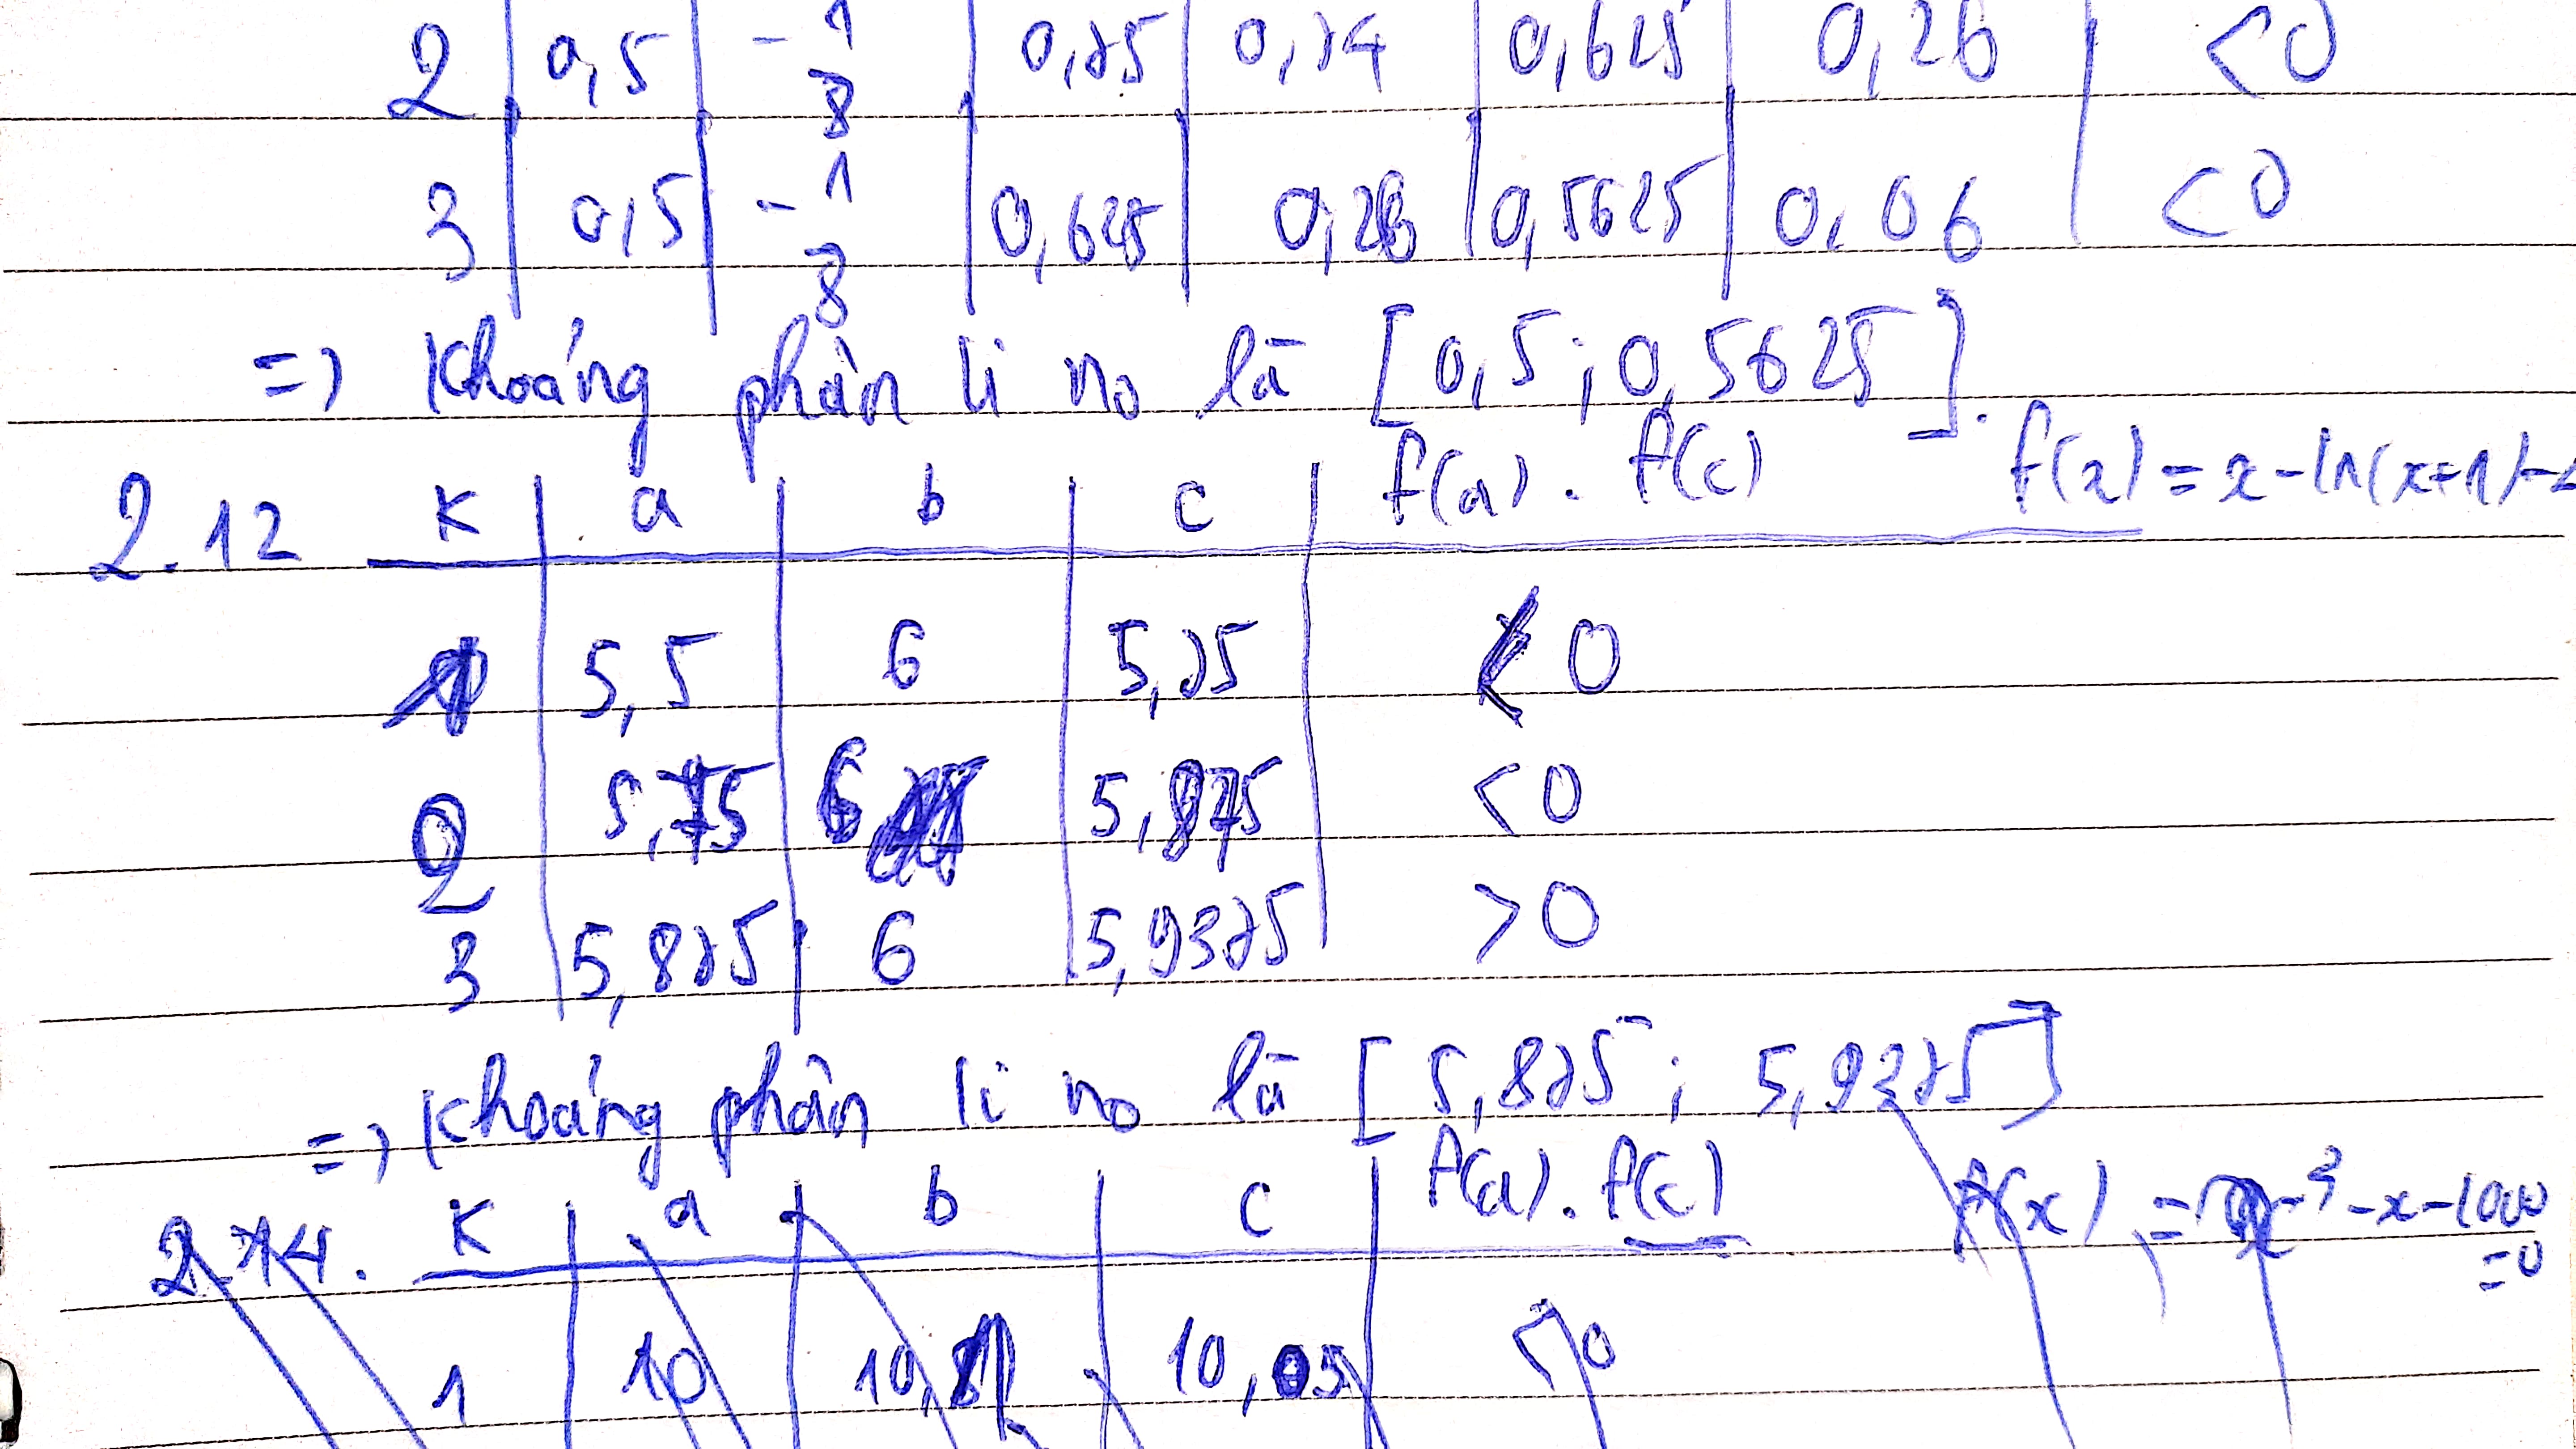 2 | 0,5 | -1/8 | 0,75 | 0,74 | 0,625 | 0,26 | <0
3 | 0,5 | -1/8 | 0,625 | 0,26 | 0,5625 | 0,06 | <0
=> Khoảng phân li no là [0,5 ; 0,5625].
2.12 K | a | b | c | f(a).f(c) f(x) = x - ln(x+1) -
1 | 5,5 | 6 | 5,75 | 0
2 | 5,75 | 6 | 5,875 | <0
3 | 5,875 | 6 | 5,9375 | >0
=> Khoảng phân li no là [5,875 ; 5,9375]
2.14. K | a | b | c | f(a).f(c) f(x) = x³ - x - 1000
=0
1 | 10 | 10,1 | 10,05 | 0